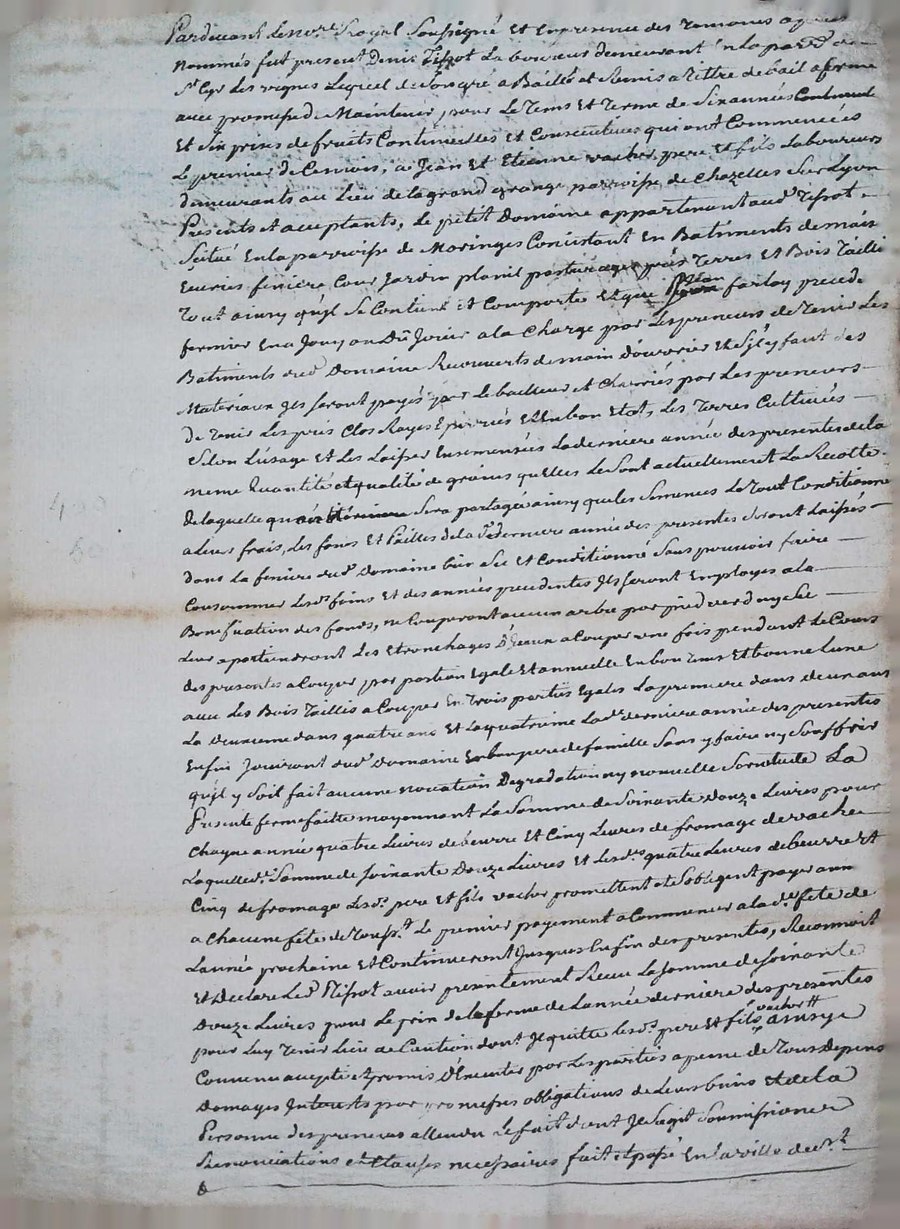 Pardevant Le nore Royal Soussigné Et En presence des Temoins apres
nommés fut present Denis Tissot Laboureur demeurant En La parre de
St Cyr Les vignes Lequel de Son gré a Baillé et Remis a Tittre de bail a ferme
avec promesse de Maintenir pour Le Tems Et Terme de Six années
Et Six prises de fruits Continuelles Et Consecutives qui ont Commencées
Le premier de Ce mois, a Jean Et Etienne vacher pere Et fils Laboureurs
demeurants au Lieu de la grand grange parroisse de Chazelles Sur Lyon
Présents et acceptants, Le petit Domaine appartenant aud Tissot
Scitué En la parroisse de Maringes Consistant En Batiments de maison
Ecurie feniere Cour Jardin pasturages prés Terres Et Bois Taillis
Tout ainsy quil Se Contient Et Comporte Et que Jean farlay preced.
fermier En a Jouy ou Dû Jouir a la Charge par Les preneurs de Tenir Les
Batiments dud Domaine Recouverts de main d'ouvrier Et S'il y faut des
Materiaux ils Seront payés par Le bailleur et Charriés par Les preneurs
De Tenir Les prés Clos Rayés Epierrés Et En bon Etat, Les Terres Cultivées
Selon L'usage Et Les Laisser Ensemensées La derniere année des presentes de la
meme Quantité et qualité de grains quelles Le Sont actuellement La Recolte
de laquelle Sera partagée ainsy que les Semences Le Tout Conditionné
a Leurs frais, Les foins Et Pailles de la de derniere année des presentes Seront Laissés
dans La feniere dud Domaine bien Sec Et Conditionné Sans pouvoir faire
Consommer Lesd foins Et des années precedentes Ils Seront Employés a la
Bonification des fonds, ne Couperont aucun arbre par pied verd ny Sec
Leur apartiendront Les Etronchages D'Iceux a Couper une fois pendant Le Cours
des presentes a Couper par portion Egale Et annuelle En bon Tems Et bonne Lune
avec Les Bois Taillis a Couper En Trois parties Egales La premiere dans deux ans
La Deuxieme dans quatre ans Et La quatrieme Lade derniere année des presentes
Enfin Jouiront dud Domaine En bon pere de famille Sans y faire ny Souffrir
quil y Soit fait aucune novation Degradation ny nouvelle Servitude La
Presente ferme faitte moyennant La Somme de Soixante douze Livres pour
Chaque année quatre Livres de beurre Et Cinq Livres de fromage de vache
Laquelle de Somme de Soixante Douze Livres Et Lesd quatre Livres de beurre Et
Cinq de fromage Lesd pere Et fils vacher promettent et S'obligent payer
a Chacune fête de Toust Le premier payement a Commencer a la de fête de
L'année prochaine Et Continueront Jusques En fin des presentes, Reconnoit
Et Declare Led Tissot avoir presentement Receu La Somme de Soixante
Douze Livres pour Le prix de la ferme de L'année derniere des presentes
pour Luy Tenir Lieu de Caution dont Il quitte Lesd pere Et fils vacher ainsy
Convenu accepté et promis D'Executer par Les parties a peine de Tous Depens
Domages Interets par promesses obligations de Leurs biens Et de la
Personne des preneurs attendu Le fait dont Il S'agit Soumissions
Renonciations et Clauses necessaires fait et passé En La ville de St